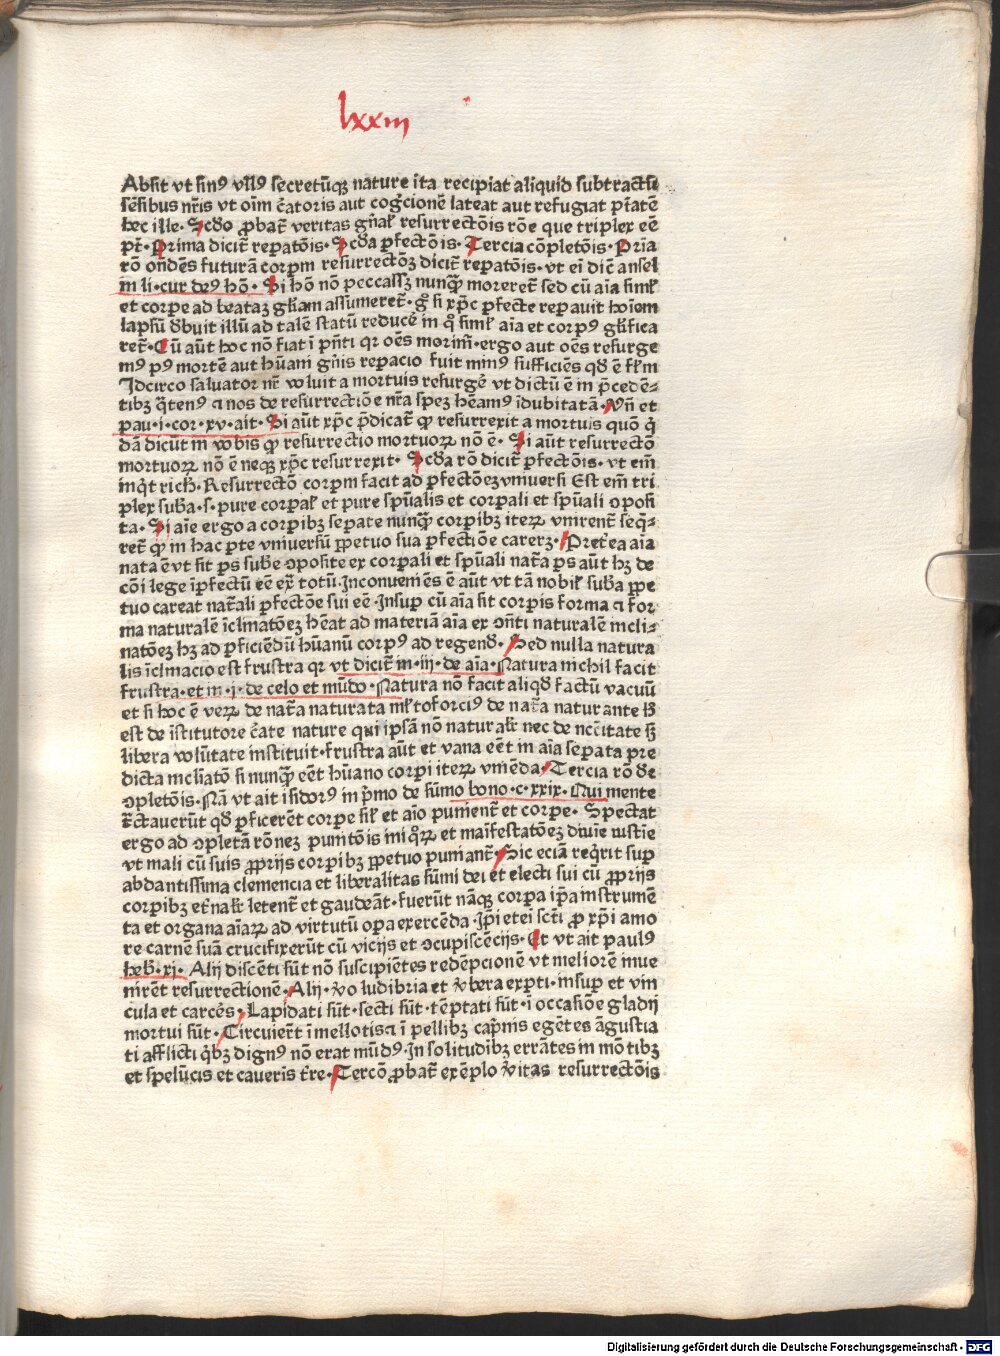 lxxiii
Absit vt sinꝰ vllꝰ secretūqꝫ nature ita recipiat aliquid subtractū
sēsibus nr̄is vt oīm c̄atoris aut cogc̄ionē lateat aut refugiat pt̄atē
hec ille· Scd̓o ꝓbat᷑ veritas gn̄al̓ resurrectōis rōe que triplex eē
pt̄· Prima dicit᷑ reꝑatōis· Scd̓a ꝑfectōis· Tercia cōpletōis· Pria
rō on̄dēs futurā corꝑm resurrectōꝫ dicit᷑ reꝑatōis· vt ei dic̄ ansel
m li·cur deꝰ hō· Si hō nō peccassꝫ nunqꝫ moreret᷑ sed cū aīa siml̓
et corꝑe ad beataꝫ gl̓iam assumeret᷑· g̊ si xp̄c ꝑfecte reꝑauit hoīem
lapsū dꝫbuit illū ad talē statū reducē in q̊ siml̓ aīa et corpꝰ gl̓ifica
ret᷑· Cū aūt hoc nō fiat ī pn̄ti qr oēs morim̄· ergo aut oēs resurge
mꝰ pꝰ mortē aut hūani gn̄is reꝑacio fuit minꝰ sufficiēs qd̓ ē fl̓m
Idcirco saluator nr̄ voluit a mortuis resurgē vt dictū ē in p̄cedē-
tibꝫ q̄tenꝰ a nos de resurrectiōe nr̄a speꝫ hēamꝰ īdubitatā· Vn̄ et
pau·i·cor·xv·ait· Si aūt xp̄c p̄dicat᷑ ꝙ resurrexit a mortuis quō q̇
dā dicūt in vobis ꝙ resurrectio mortuoꝝ nō ē· Si aūt resurrectō
mortuoꝝ nō ē neqꝫ xp̄c resurrexit· Scd̓a rō dicit᷑ ꝑfectōis· vt eni̅
inq̇t rich̓· Resurrectō corꝑm facit ad ꝑfectōeꝫ vniuersi Est eni̅ tri
plex sub̓a·s· pure corꝑal̓ et pure spūalis et corꝑali et spūali ↄposi
ta· Si aīe ergo a corꝑibꝫ seꝑate nunqꝫ corꝑibꝫ iteꝝ vnirent᷑ seq̇-
ret᷑ ꝙ in hac ꝑte vniuersū ꝑpetuo sua ꝑfectiōe careret· Pret̓ea aīa
nata ē vt sit ꝑs sub̓e ↄposite ex corꝑali et spūali nat̄a ꝑs aūt hꝫ de
cōi lege īꝑfectū eē ex̄ totū· Inconueniēs ē aūt vt tā nobil̓ sub̓a ꝑpe
tuo careat nat̄ali ꝑfectōe sui eē· Insuꝑ cū aīa sit corꝑis forma a for
ma naturalē īclinatōeꝫ hēat ad materiā aīa ex ↄn̄ti naturalē incli-
natōeꝫ hꝫ ad ꝑficiēdū hūanū corpꝰ ad regend̓· Sed nulla natura
lis īclinacio est frustra qr vt dicit᷑ in·iij·de aīa· Natura nichil facit
frustra·et in·i·de celo et mūdo· Natura nō facit aliqd̓ factū vacuū
et si hoc ē veꝝ de nat̄a naturata ml̓tofortiꝰ de nat̄a naturante h̓
est de īstitutore c̄ate nature qui ipsā nō natural̓r nec de nc̄citate sꝫ
libera volūtate instituit· frustra aūt et vana eēt in aīa seꝑata pre
dicta incliatō si nunqꝫ eēt hūano corꝑi iteꝝ vniēda· Tercia rō de
ↄpletōis· Nā vt ait isidorꝰ in p̄mo de sūmo bono·c·xxix· Qui mente
t̄ctauerūt qd̓ ꝑficerēt corꝑe sil̓ et aīo punient᷑ et corꝑe· Spectat
ergo ad ↄpletā rōneꝫ punitōis iniq̊ꝝ et maīfestatōeꝫ diuīe iustie
vt mali cū suis ꝓprijs corꝑibꝫ ꝑpetuo puniant᷑· Sic eciā req̇rit suꝑ
abdantissima clemencia et liberalitas sūmi dei et electi sui cū ꝓprijs
corꝑibꝫ et̓nal̓r letent᷑ et gaudeāt· fuerūt nāqꝫ corꝑa ip̄a instrumē
ta et organa aīaꝝ ad virtutū oꝑa exercēda· Ip̄i etei scti ꝓ xp̄i amo
re carnē suā crucifixerūt cū vicijs et ↄcupiscēcijs· Et vt ait paulꝰ
heb̓·xj· Alij discēti sūt nō suscipiētes redēpcionē vt meliorē inue
nirēt resurrectionē· Alij ꝟo ludibria et ꝟbera exꝑti· insuꝑ et vin
cula et carcēs· Lapidati sūt· secti sūt· tēptati sūt· ī occasiōe gladij
mortui sūt· Circuiert̄ ī mellotis a ī pellibꝫ capīnis egētes āgustia
ti afflicti q̇bꝫ dignꝰ nō erat mūdꝰ· In solitudibꝫ errātes in mō tibꝫ
et spelūcis et cauer̄is t̓re· Tercō ꝓbat᷑ exēplo ꝟitas resurrectōis
Digitalisierung gefördert durch die Deutsche Forschungsgemeinschaft - DFG